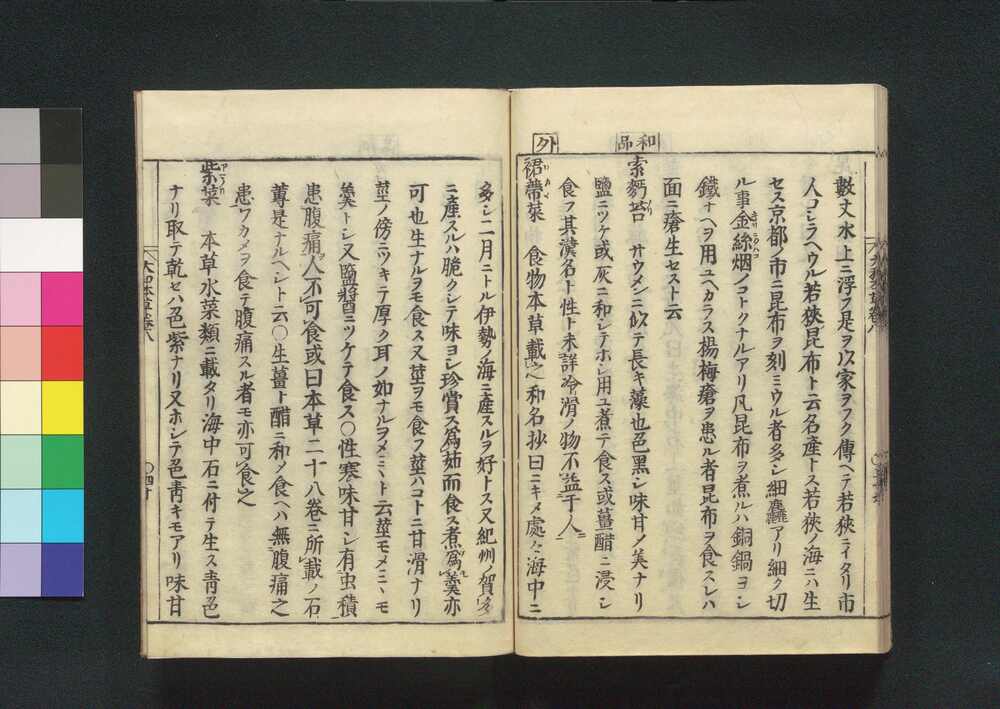 數丈水上ニ浮フ是ヲ以家ヲフク傳ヘテ若狹ニイタリ市
人コシラヘウル若狹昆布ト云名産トス若狹ノ海ニハ生
セス京都ノ市ニ昆布ヲ刻ミウル者多シ細麤アリ細ク切
ル事金絲烟ノコトクナルアリ凡昆布ヲ煮ルハ銅鍋ヨシ
鐵ナヘヲ用ユヘカラス楊梅瘡ヲ患ル者昆布ヲ食スレハ
面ニ瘡生セスト云
和品
索麪苔 サウメンニ似テ長キ藻也色黑シ味甘ク美ナリ
鹽ニツケ或灰ニ和シテホシ用ユ煮テ食ス或薑醋ニ浸シ
食フ其漢名ト性ト未詳冷滑ノ物不益于人
外
裙帶菜 食物本草載之和名抄曰ニキメ處々海中ニ
多シ二月ニトル伊勢ノ海ニ産スルヲ好トス又紀州ノ賀多
ニ産スルハ脆クシテ味ヨシ珍賞ス爲茹而食ス煮爲羹亦
可也生ナルヲモ食ス又莖ヲモ食フ莖ハコトニ甘滑ナリ
莖ノ傍ニツキテ厚ク耳ノ如ナルヲメミヽト云莖モメミヽモ
羹トシ又鹽醬ニツケテ食ス〇性寒味甘シ有虫積
患腹痛人不可食或曰本草二十八卷ニ所載ノ石
蓴是ナルヘシト云〇生薑ト醋ニ和メ食ヘハ無腹痛之
患ワカメヲ食テ腹痛スル者モ亦可食之
紫菜 本草水菜類ニ載タリ海中石ニ付テ生ス青色
ナリ取テ乾セハ色紫ナリ又ホシテ色靑キモアリ味甘